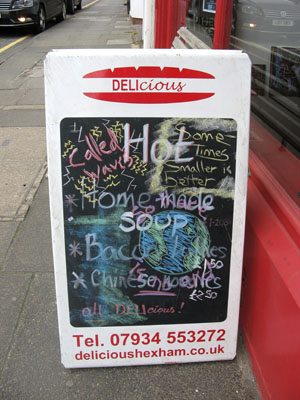 DELIcious
Called HOt Some-
waves Times
Smaller is
better
* Home-made
SOUP
* Bacon
£1.50
* Chinese noodles
£2.50
all DELIcious!
Tel. 07934 553272
delicioushexham.co.uk